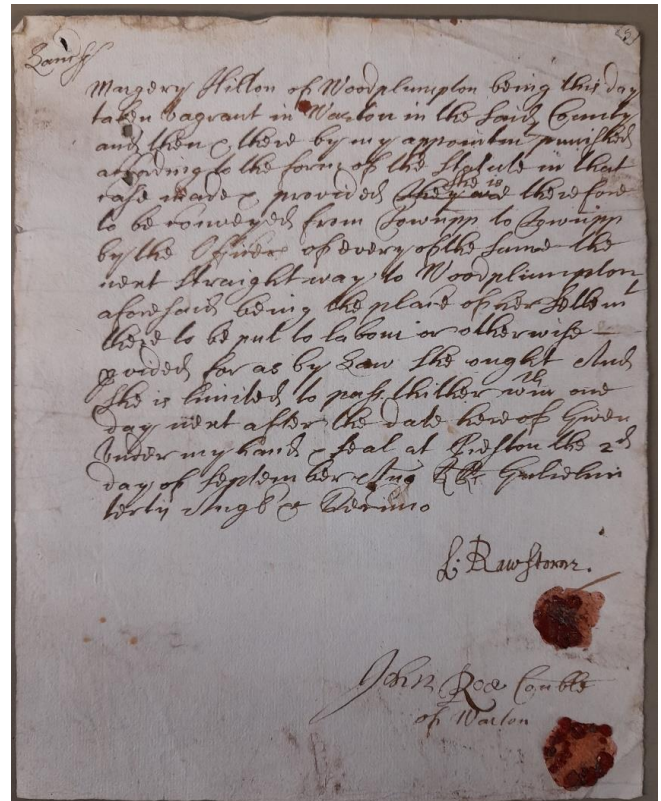 Lancs
Margery Hilton of Woodplumpton being this day
taken vagrant in Warton in the said County
and then & there by my appointmt punished
according to the form of the Statute in that
case made & provided they are she is therefore
to be conveyed from Townspp to Townspp
by the Officer of every of the same the
next straight way to Woodplumpton
aforesaid being the place of her Settlemt
there to be put to labour or otherwise
pvided for as by Law she ought And
she is limited to pass thither wth in one
day next after the date here of Given
under my hand & seal at Preston the 2d
day of September Anno RRs Gulielmi
tertij Angl &c Decimo
L: Rawstorne.
John Roe Conble
of Warton